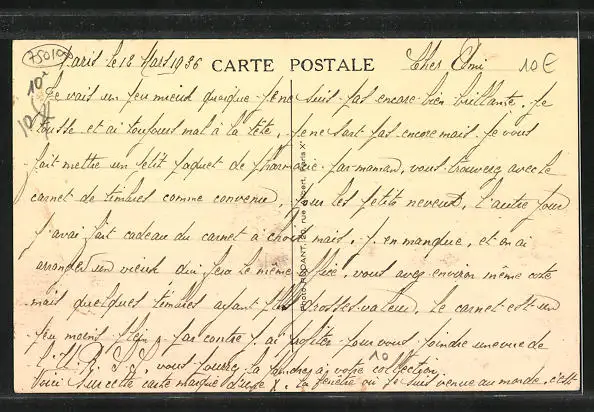 75010
Paris le 18 Mars 1936 CARTE POSTALE Cher Ami 10 €
10
Je vais un peu mieux quoique je ne suis pas encore bien brillante. Je
tousse et ai toujours mal à la tête, je ne sors pas encore mais je vous
fait mettre un petit paquet de par maman, vous trouverez avec le
carnet de timbres comme convenu, pour les petits neveux, l'autre jour
j'avai fait cadeau du carnet à choix mais j'en manque, et on ai
arrangé un vieux qui fera le même office, vous avez environ même cote
mais quelques timbres ayant plus grosses valeur, le carnet est un
peu moins plein, par contre j'ai profiter pour vous joindre une vue de
l'U.R.S.S., vous pourez la à votre collection
Voici sur cette carte marqué d'une X. la fenêtre où je suis venue au monde, c'est
Photo-RODANT, rue Paris X